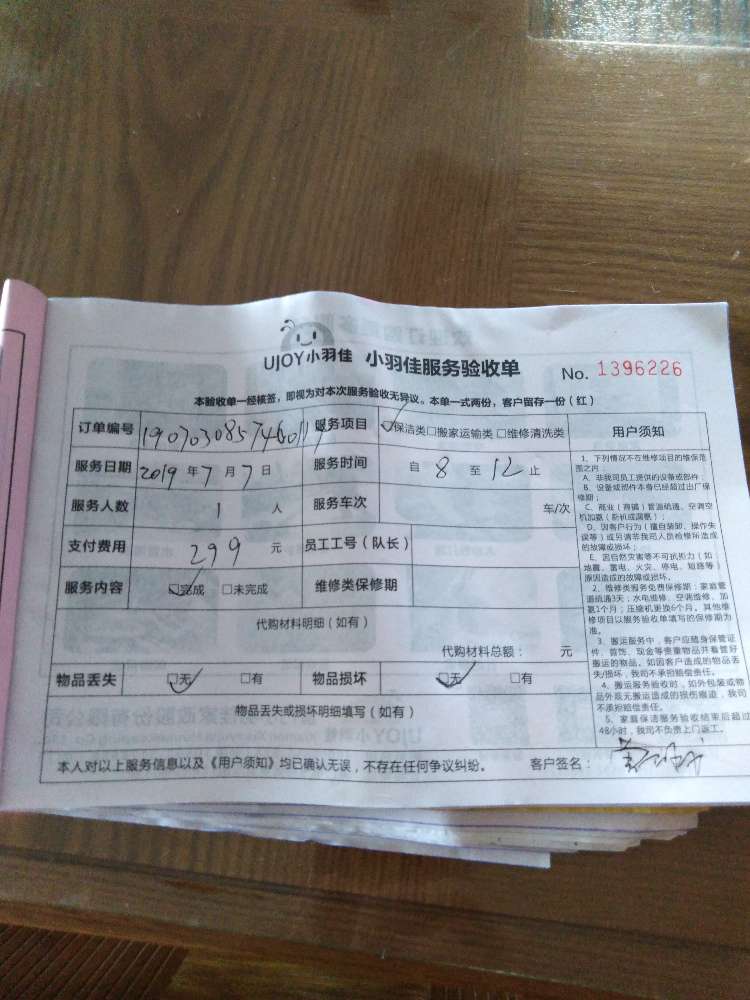 UJOY小羽佳 小羽佳服务验收单 No. 1396226
本验收单一经核签，即视为对本次服务验收无异议。本单一式两份，客户留存一份（红）
订单编号 服务项目 ☑保洁类□搬家运输类□维修清洗类
服务日期 2019 年 7 月 7 日 服务时间 自 8 至 12 止
服务人数 1 人 服务车次 车/次
支付费用 299 元 员工工号（队长）
服务内容 ☑完成 □未完成 维修类保修期
代购材料明细（如有）
代购材料总额： 元
物品丢失 ☑无 □有 物品损坏 ☑无 □有
物品丢失或损坏明细填写（如有）
本人对以上服务信息以及《用户须知》均已确认无误，不存在任何争议纠纷。 客户签名：
用户须知
1、下列情况不在维修项目的维保范
围之内：
A、非我司员工提供的设备或部件；
B、设备或部件本身已经超过出厂保
修期；
C、商业（商铺）管道疏通，空调空
机加氨（新机或漏氨）；
D、因客户行为（擅自装卸、操作失
误等）或另请非我司人员检修所造成
的故障或损坏；
E、因自然灾害等不可抗拒力（如：
地震、雷电、火灾、停电、短路等）
原因造成的故障或损坏。
2、维修类服务免费保修期：家庭管
道疏通3天；水电维修、空调维修、加
氨1个月；压缩机更换6个月。其他维
修项目以服务验收单填写的保修期为
准。
3、搬运服务中，客户应随身保管证
件、首饰、现金等贵重物品并看管好
搬运的物品。如因客户造成的物品丢
失/损坏，我司不承担赔偿责任。
4、搬运服务验收时，如外包装或物
品外观无搬运造成的损伤痕迹，我司
不承担赔偿责任。
5、家庭保洁服务验收结束后超过
48小时，我司不负责上门返工。